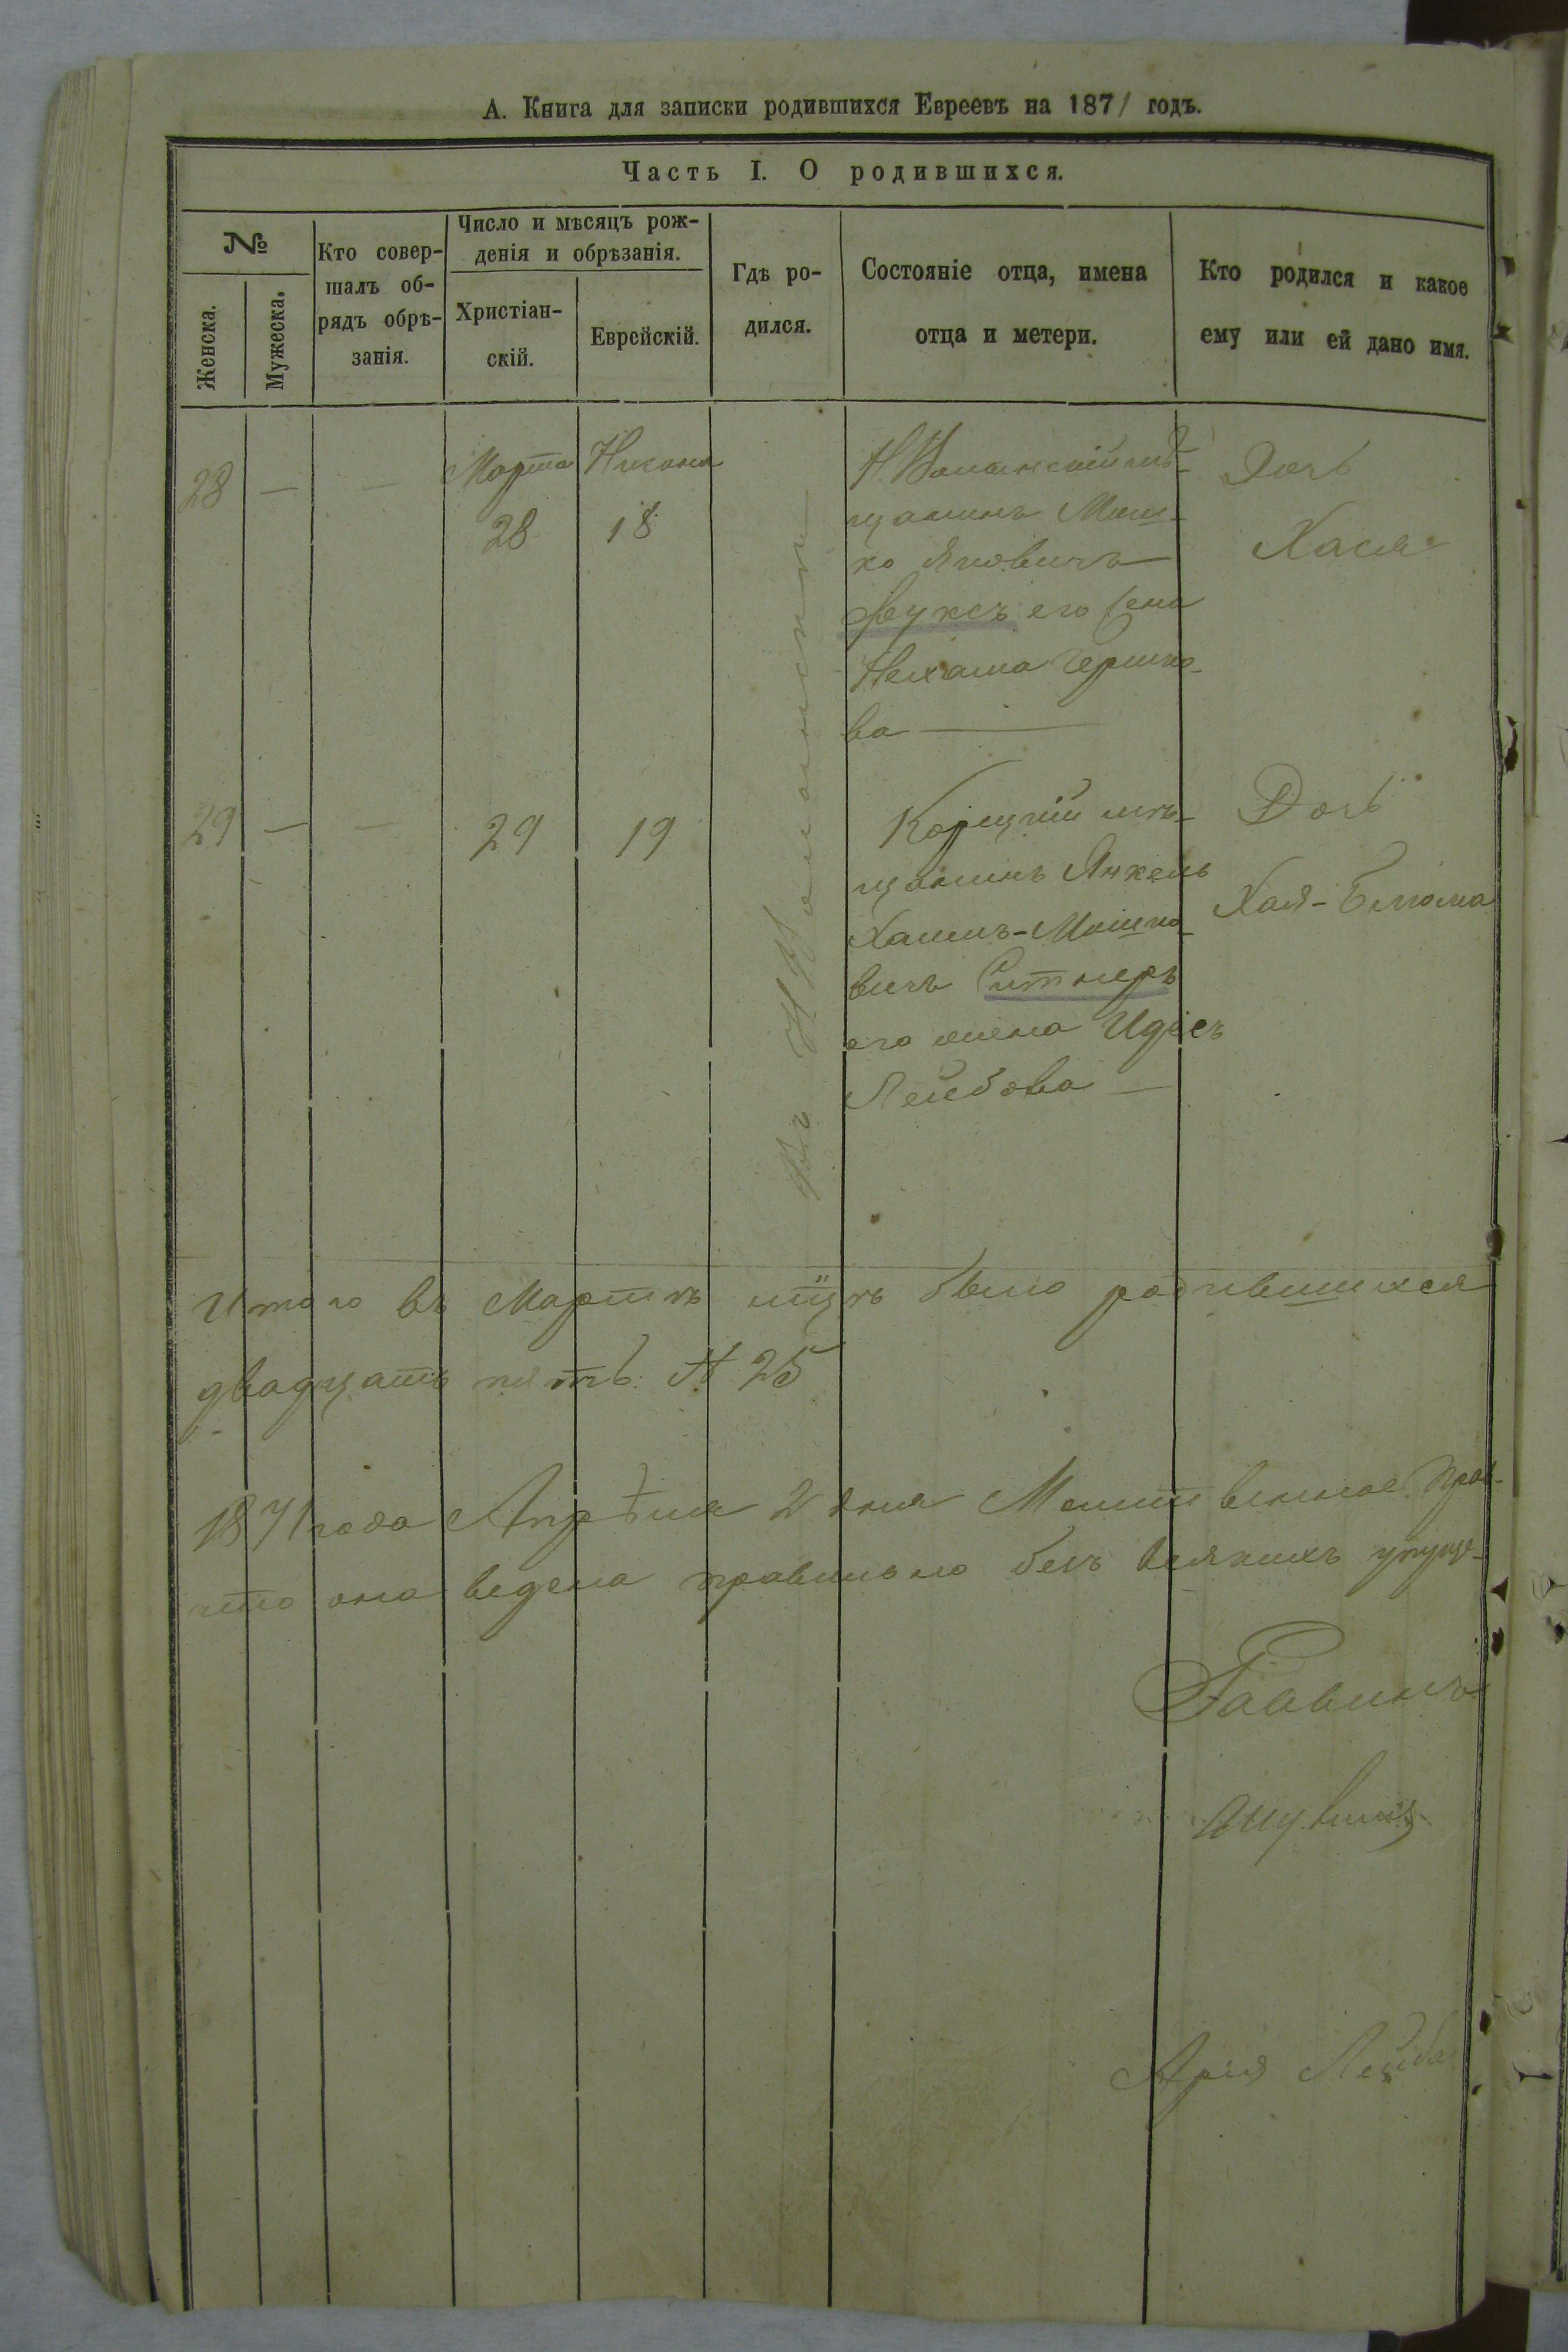 А. Книга для записки родившихся Евреевъ на 1871 годъ.
Часть I. О родившихся.
№
Женска.
Мужеска.
Кто совер-
шалъ об-
рядъ обрѣ-
занія.
Число и мѣсяцъ рож-
денія и обрѣзанія.
Христіан-
скій.
Еврейскій.
Гдѣ ро-
дился.
Состояніе отца, имена
отца и метери.
Кто родился и какое
ему или ей дано имя.
28 — — Марта Нисона
28 18
Н. Волынскій мѣ-
щанинъ Мош-
ко
Фуксъ его жена
Нехама Гершко-
ва —
Дочь
Хася
29 — — 29 19
Корецкій мѣ-
щанинъ Янкель
Хаимъ-Мошко-
вичъ Ситнеръ
его жена Идесъ
Лейбова —
Дочь
Хая-Блюма
Въ
Итого въ Мартѣ м-цѣ было родившихся
двадцать пять. № 25
1871 года Апрѣля 2 дня
что она ведена правильно безъ всякихъ упуще-
Раввинъ
Арія Лейба